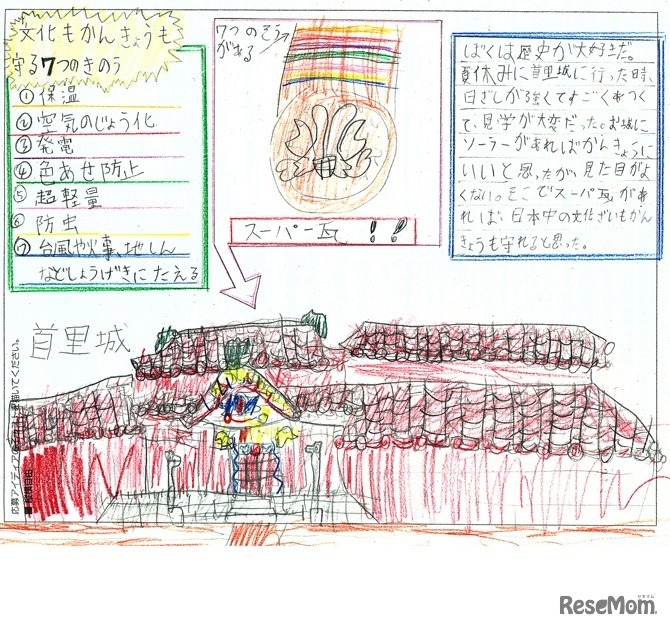 文化もかんきょうも
守る7つのきのう
①保温
②空気のじょう化
③発電
④色あせ防止
⑤超軽量
⑥防虫
⑦台風や火事、地しん
などしょうげきにたえる
7つのそう
がある
スーパー瓦!!
ぼくは歴史が大好きだ。
夏休みに首里城に行った時、
日ざしが強くてすごくあつく
て、見学が大変だった。お城に
ソーラーがあればかんきょうに
いいと思ったが、見た目がよ
くない。そこでスーパー瓦があ
れば、日本中の文化ざいもかん
きょうも守れると思った。
首里城
ReseMom.